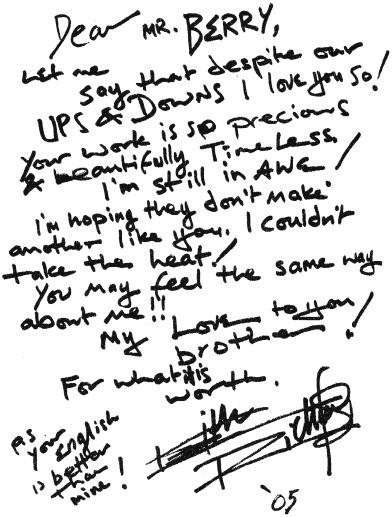 Dear MR. BERRY,
Let me
say that despite our
UPS & DOWNS I love you so!
Your work is so precious
& beautifully Timeless.
I'm still in AWE!
I'm hoping they don't make
another like you. I couldn't
take the heat!
You may feel the same way
about me!!
My Love to you
brother!
For what it is
worth.
Keith Richards
'05
P.S
your
English
is better
than
mine!